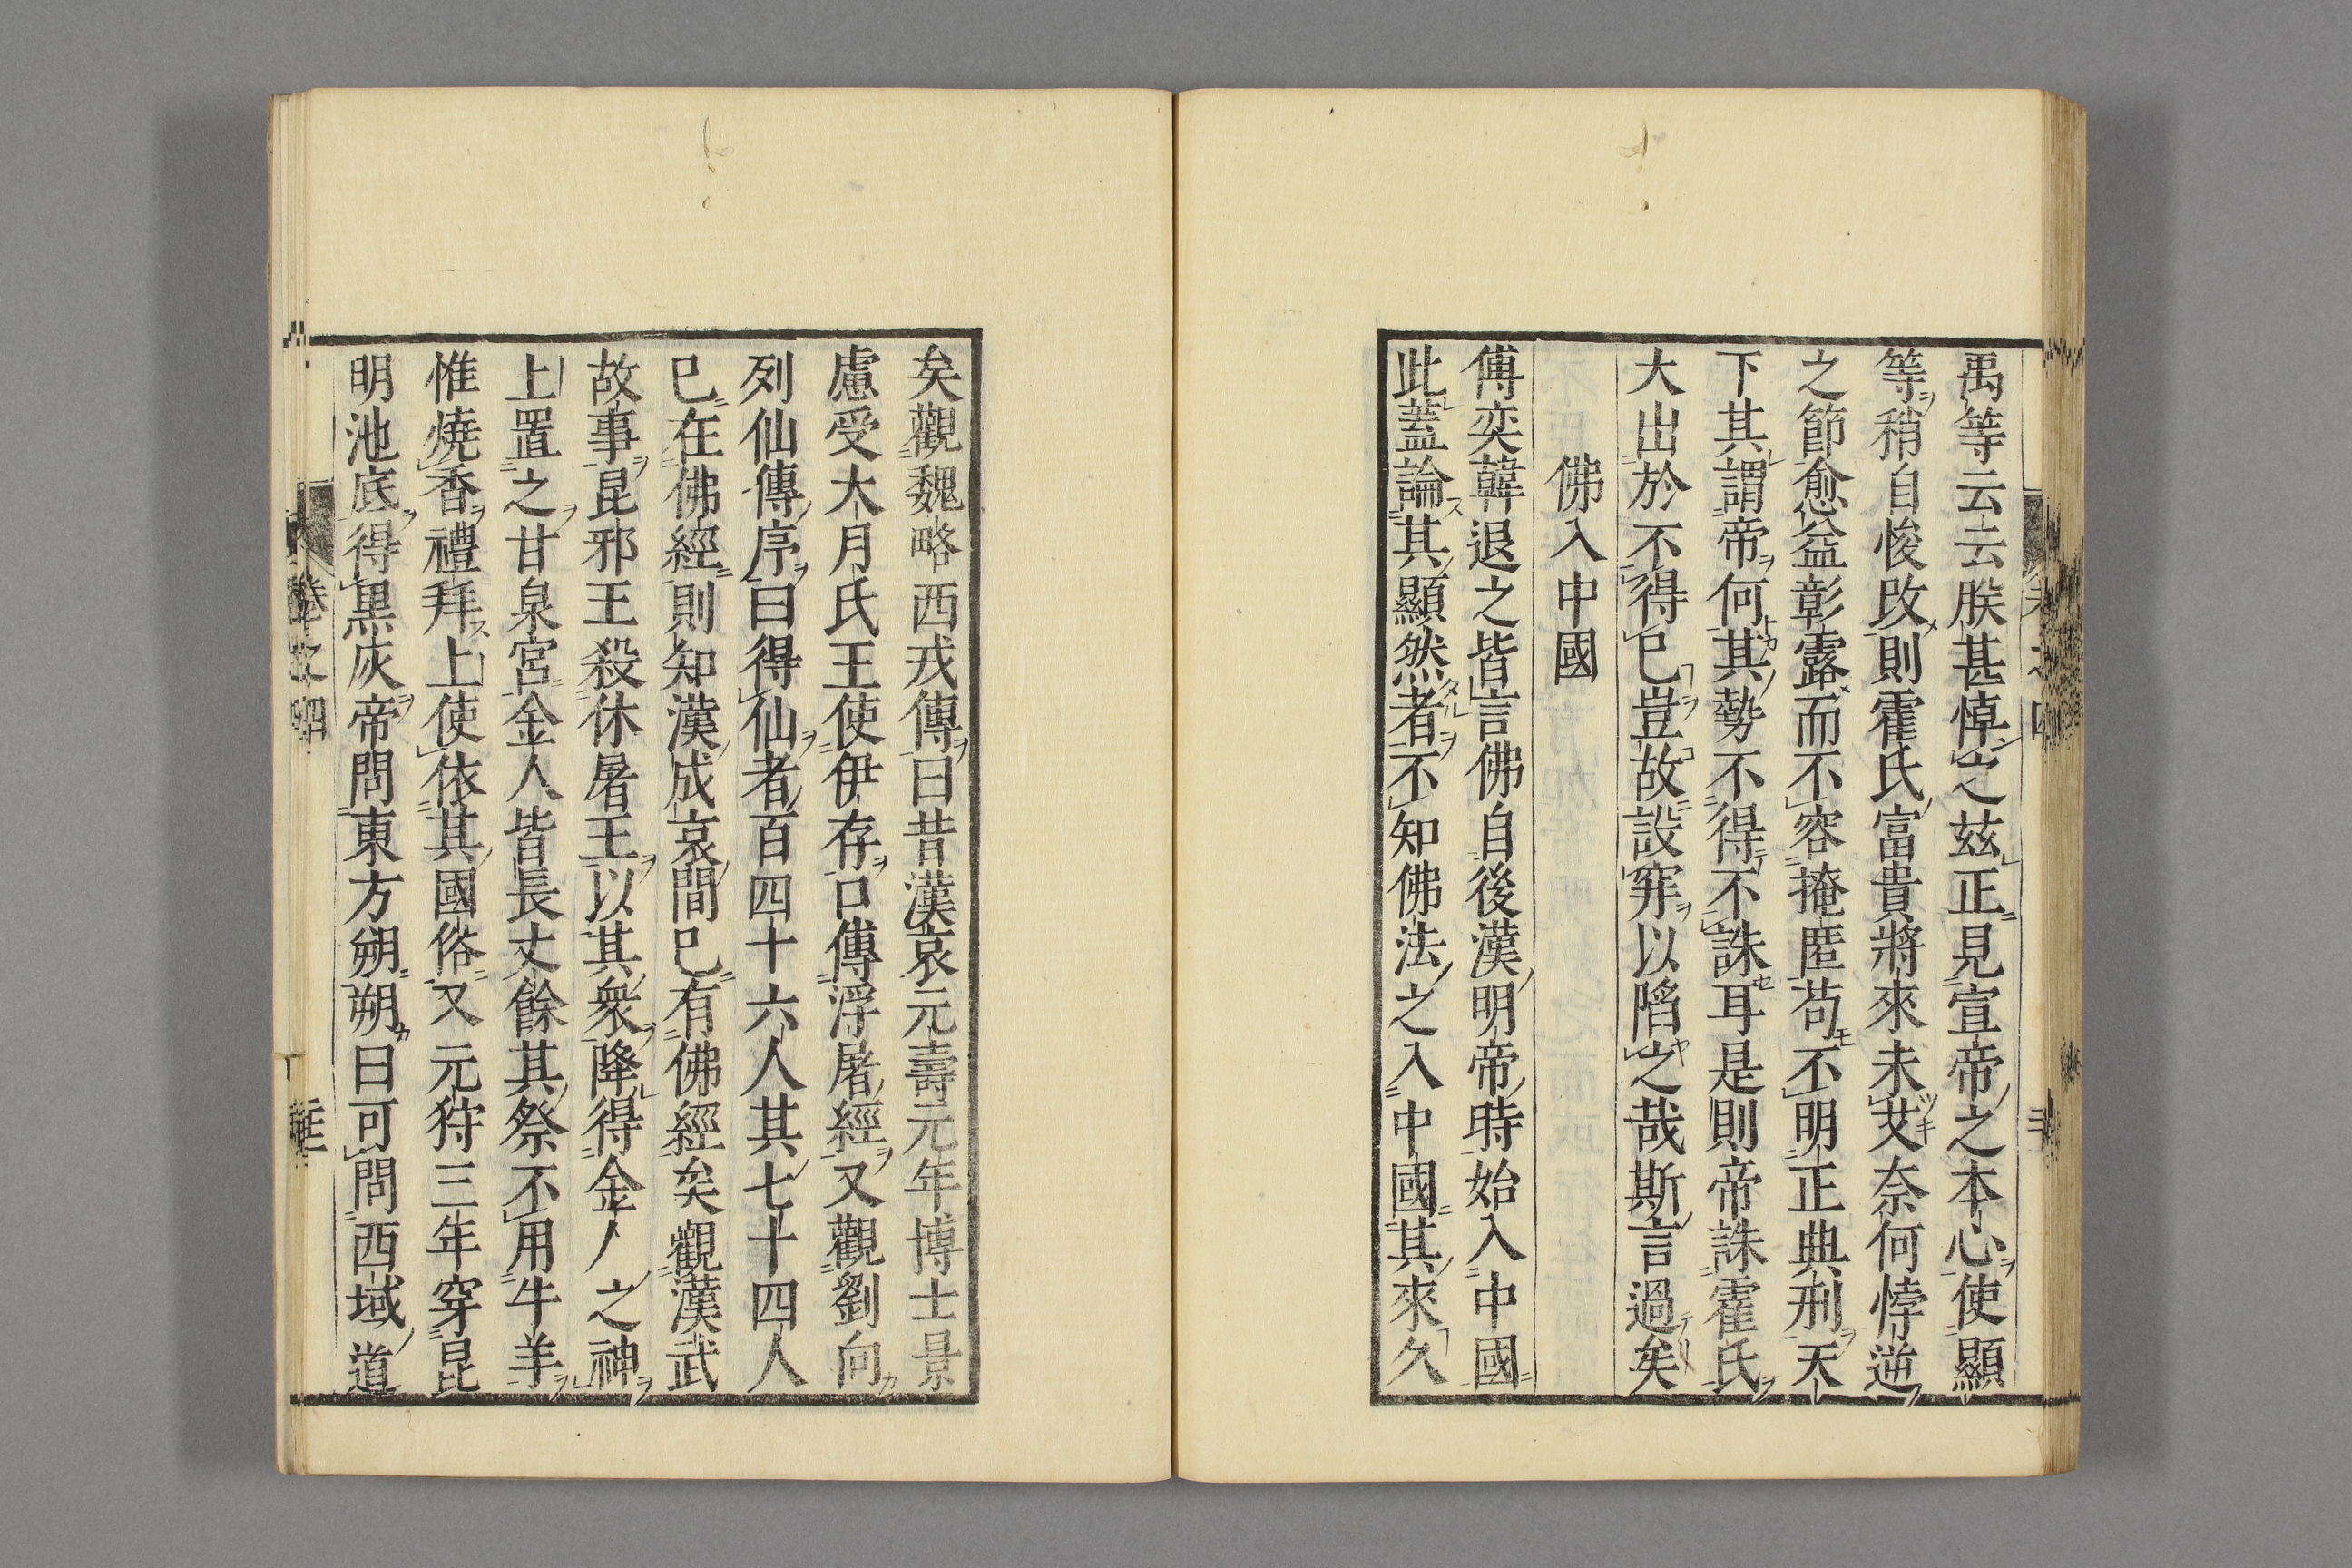 禹等云云朕甚悼之玆正見宣帝之本心使顯
等稍自悛改則霍氏富貴將來未艾奈何悖逆
之節愈益彰露而不容掩匿苟不明正典刑天
下其謂帝何其勢不得不誅耳是則帝誅霍氏
大出於不得已豈故設穽以陷之哉斯言過矣
佛入中國
傅奕韓退之皆言佛自後漢明帝時始入中國
此蓋論其顯然者不知佛法之入中國其來久
矣觀魏略西戎傳曰昔漢哀元壽元年博士景
慮受大月氏王使伊存口傳浮屠經又觀劉向
列仙傳序曰得仙者百四十六人其七十四人
已在佛經則知漢成哀間已有佛經矣觀漢武
故事昆邪王殺休屠王以其衆降得金人之神
上置之甘泉宮金人皆長丈餘其祭不用牛羊
惟燒香禮拜上使依其國俗又元狩三年穿昆
明池底得黑灰帝問東方朔朔曰可問西域道
卷之四